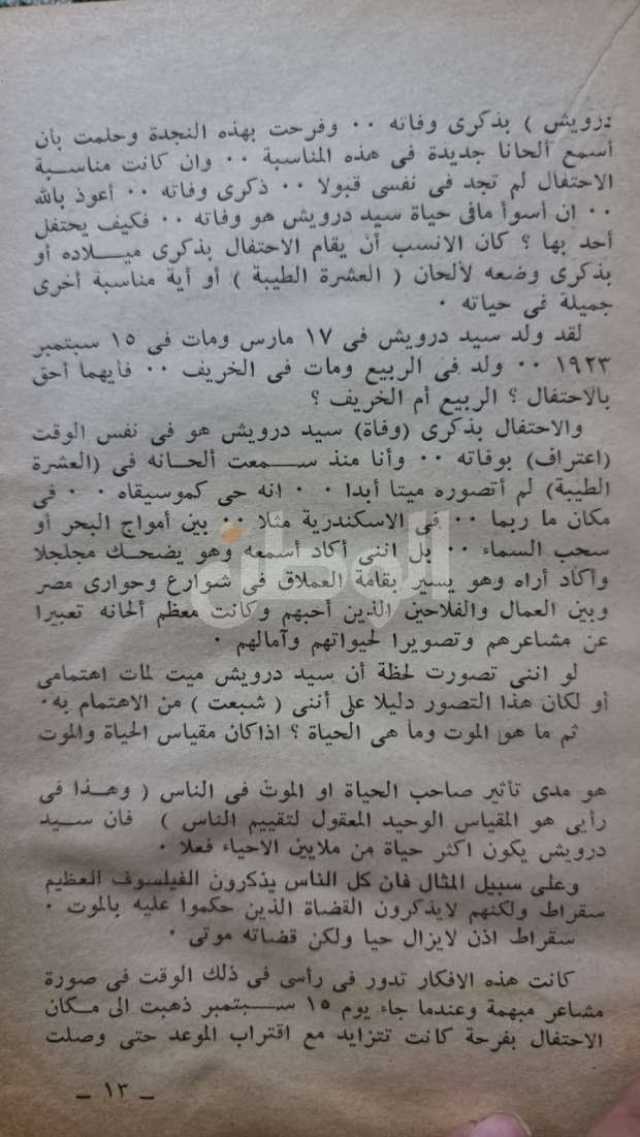 درويش ) بذكرى وفاته ٠٠ وفرحت بهذه النجدة وحلمت بأن
أسمع ألحانا جديدة فى هذه المناسبة ٠٠ وان كانت مناسبة
الاحتفال لم تجد فى نفسى قبولا ٠٠ ذكرى وفاته ٠٠ أعوذ بالله
٠٠ ان أسوأ مافى حياة سيد درويش هو وفاته ٠٠ فكيف يحتفل
أحد بها ؟ كان الانسب أن يقام الاحتفال بذكرى ميلاده أو
بذكرى وضعه لألحان ( العشرة الطيبة ) أو أية مناسبة أخرى
جميلة فى حياته ٠
لقد ولد سيد درويش فى ١٧ مارس ومات فى ١٥ سبتمبر
١٩٢٣ ٠٠ ولد فى الربيع ومات فى الخريف ٠٠ فأيهما أحق
بالاحتفال ؟ الربيع أم الخريف ؟
والاحتفال بذكرى (وفاة) سيد درويش هو فى نفس الوقت
(اعتراف) بوفاته ٠٠ وأنا منذ سمعت ألحانه فى (العشرة
الطيبة) لم أتصوره ميتا أبدا ٠٠ انه حى كموسيقاه ٠٠ فى
مكان ما ربما ٠٠ فى الاسكندرية مثلا ٠٠ بين أمواج البحر أو
سحب السماء ٠٠ بل اننى أكاد أسمعه وهو يضحك مجلجلا
وأكاد أراه وهو يسير بقامة العملاق فى شوارع وحوارى مصر
وبين العمال والفلاحين الذين أحبهم وكانت معظم ألحانه تعبيرا
عن مشاعرهم وتصويرا لحيواتهم وآمالهم ٠
لو اننى تصورت لحظة أن سيد درويش ميت لمات اهتمامى
أو لكان هذا التصور دليلا على أننى ( شبعت ) من الاهتمام به٠
ثم ما هو الموت وما هى الحياة ؟ اذاكان مقياس الحياة والموت
هو مدى تأثير صاحب الحياة او الموت فى الناس ( وهذا فى
رأيى هو المقياس الوحيد المعقول لتقييم الناس ) فان سيد
درويش يكون اكثر حياة من ملايين الاحياء فعلا ٠
وعلى سبيل المثال فان كل الناس يذكرون الفيلسوف العظيم
سقراط ولكنهم لايذكرون القضاة الذين حكموا عليه بالموت ٠
سقراط اذن لايزال حيا ولكن قضاته موتى ٠
كانت هذه الافكار تدور فى رأسى فى ذلك الوقت فى صورة
مشاعر مبهمة وعندما جاء يوم ١٥ سبتمبر ذهبت الى مكان
الاحتفال بفرحة كانت تتزايد مع اقتراب الموعد حتى وصلت
– ١٣ –
الوطن